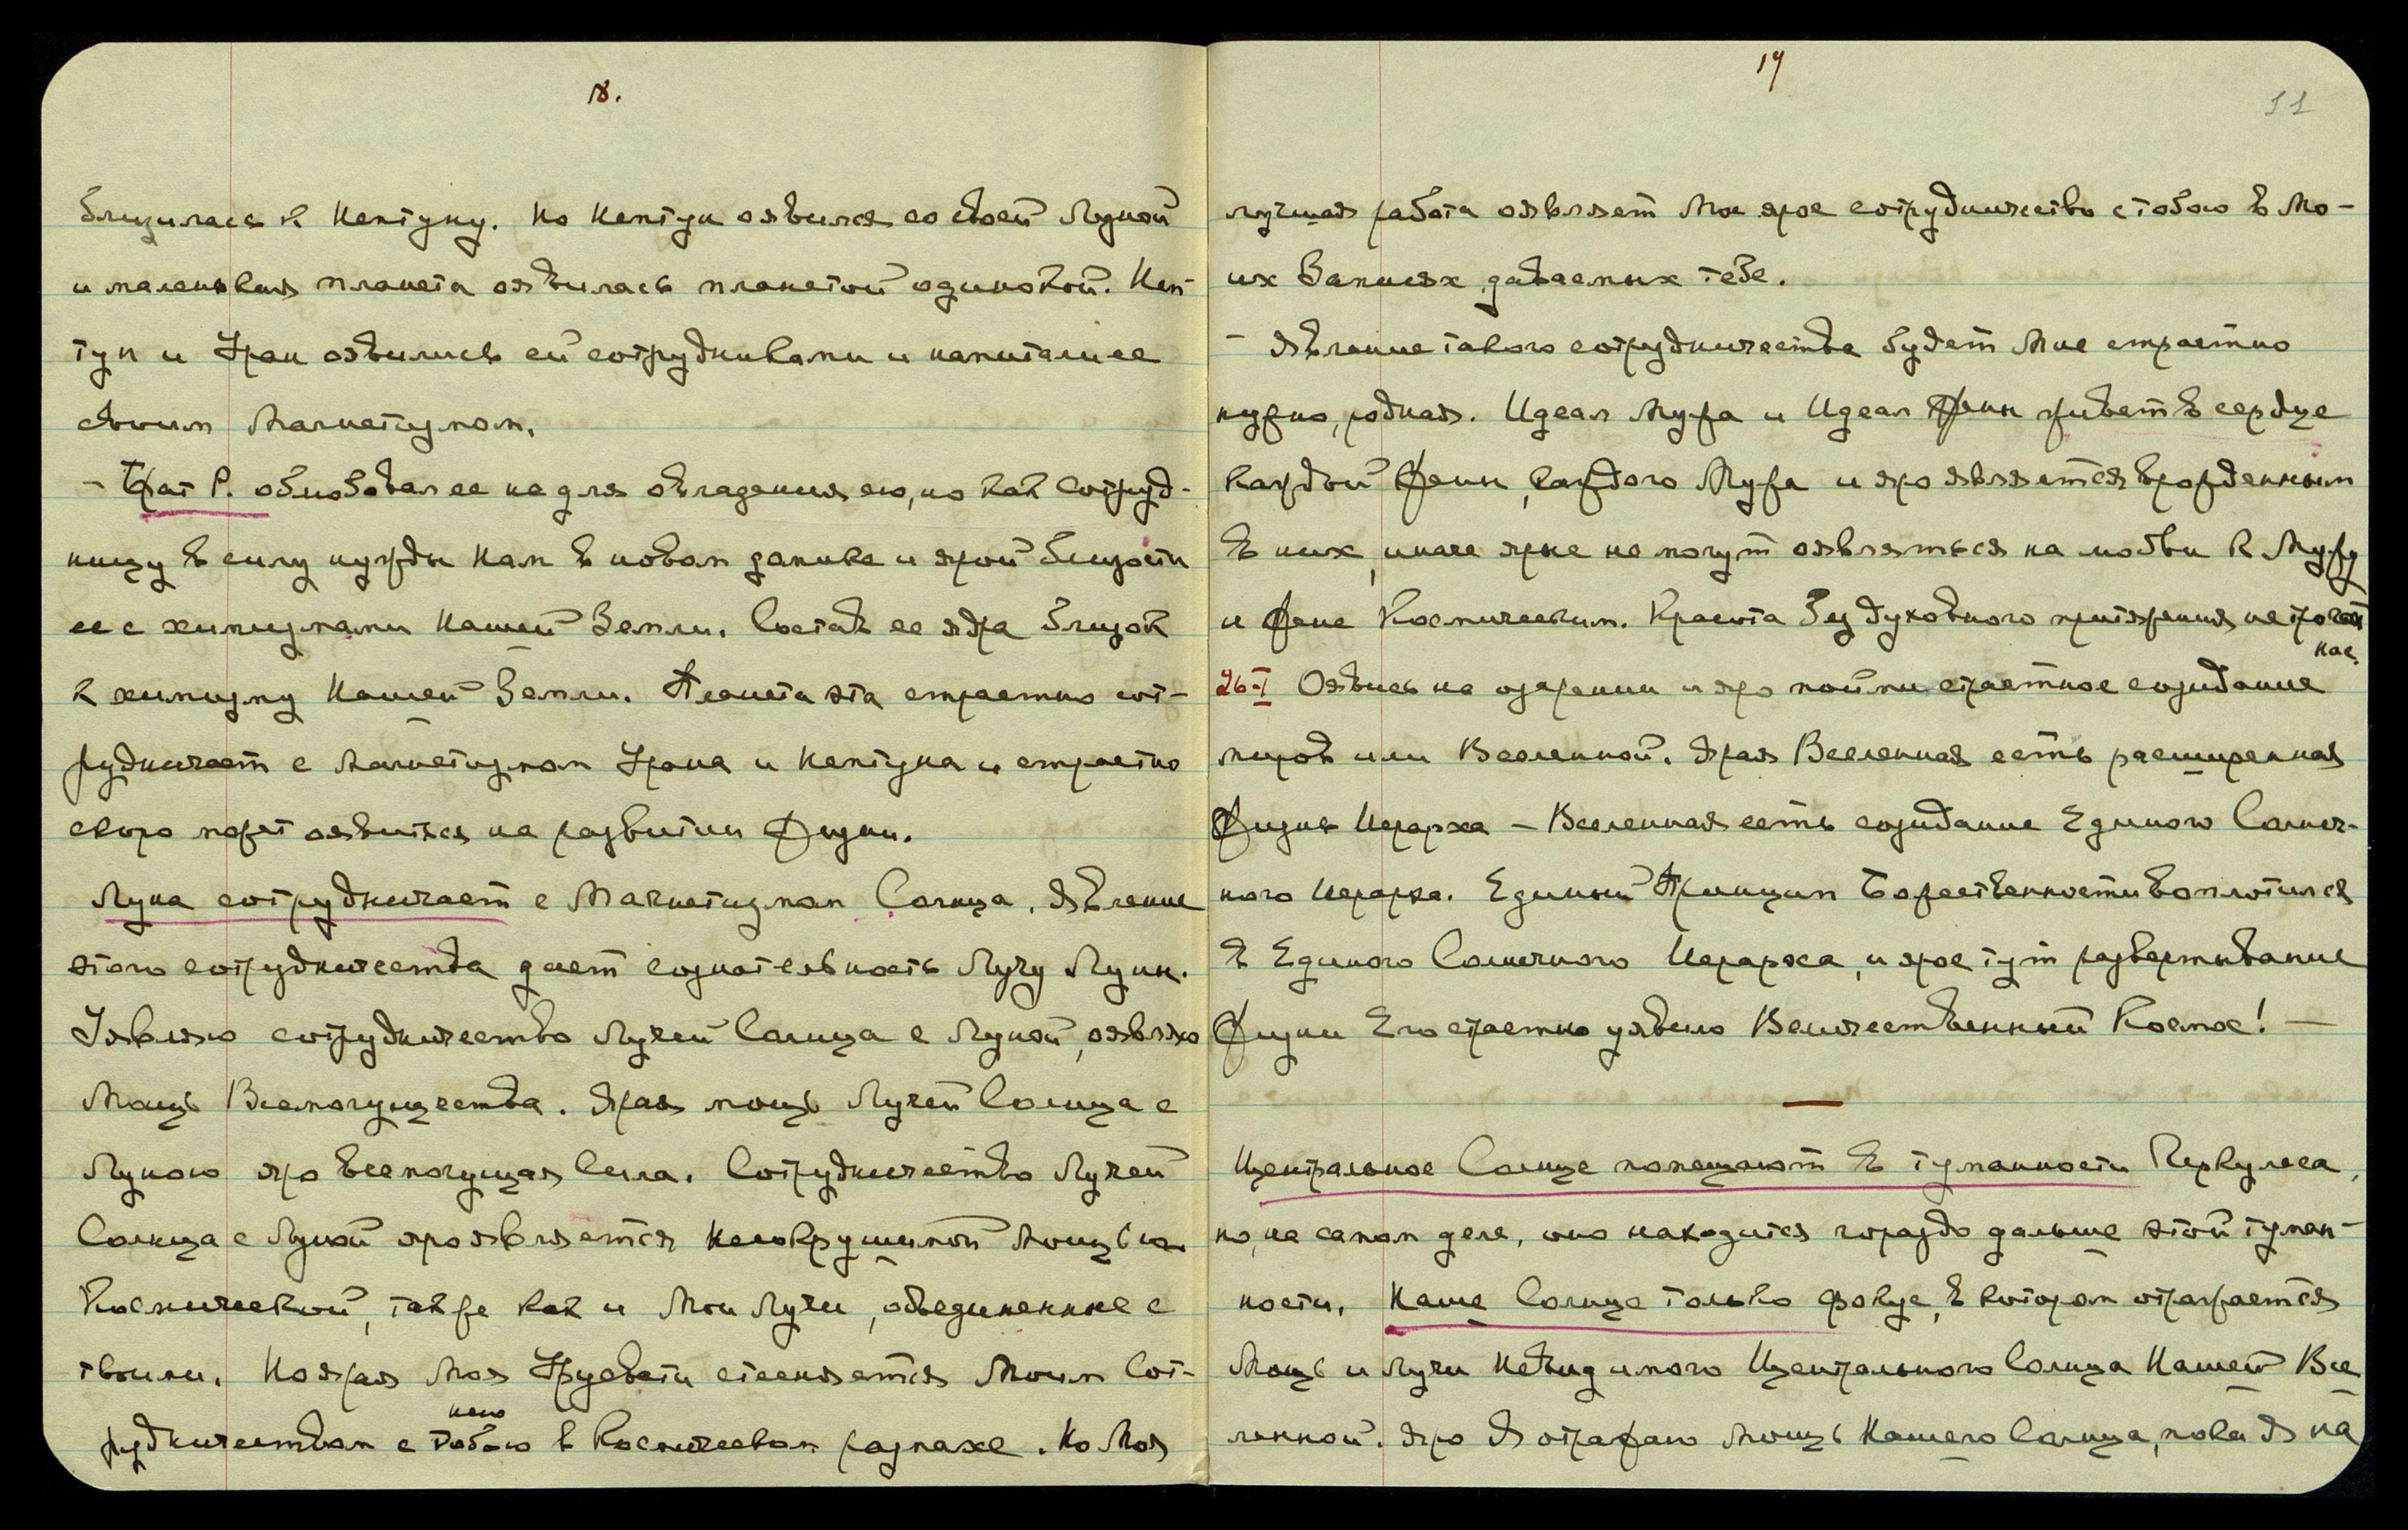 18.
близилась к Нептуну. Но Нептун оявился со своей Луной
и маленькая планета оявилась планетой одинокой. Неп-
тун и Уран оявились ей сотрудниками и напитали ее
своим Магнетизмом.
- Брат Р. облюбовал ее не для овладения ею, но как Сотруд-
ницу в силу нужды Нам в новом данника и ярой близости
ее с химизмами Нашей Земли. Состав ее ядра близок
к химизму Нашей Земли. Планета эта страстно сот-
рудничает с Магнетизмом Урана и Нептуна и страстно
скоро может оявиться на развитии Жизни.
Луна сотрудничает с Магнетизмом Солнца. Явление
этого сотрудничества дает сознательность Лучу Луны.
Уявляю сотрудничество Лучей Солнца с Луной, оявляю
Мощь Всемогущества. Ярая мощь Лучей Солнца с
Луною яро всемогущая Сила. Сотрудничество Лучей
Солнца с Луной яро является Несокрушимой Мощью
Космической, также как и Мои Лучи, объединенные с
твоими. Но ярая Моя Урусвати стесняется Моим Сот-
рудничеством с нею тобою в Космическом размахе. Но Моя
19
11
лучшая работа оявляет Мое ярое сотрудничество с тобою в Мо-
их Записях, даваемых тебе.
- Явление такого сотрудничества будет Мне страстно
нужно, родная. Идеал Мужа и Идеал Жены живет в сердце
каждой Жены, каждого Мужа и яро является врожденным
в них, иначе ярые не могут оявляться на любви к Мужу
и Жене Космическим. Красота без духовного притяжения не трогает
нас.
26-I Оявись на озарении и яро пойми страстное созидание
миров или Вселенной. Ярая Вселенная есть расширенная
Жизнь Иерарха - Вселенная есть создание Единого Солнеч-
ного Иерарха. Единый Принцип Божественности воплотился
в Единого Солнечного Иерарха, и ярое тут развертывание
Жизни Его страстно уявило Величественный Космос! -
Центральное Солнце помещают в туманности Геркулеса,
но, на самом деле, оно находится гораздо дальше этой туман-
ности. Наше Солнце только фокус, в котором отражается
Мощь и Лучи Невидимого Центрального Солнца Нашей Все-
ленной. Яро Я отражаю Мощь Нашего Солнца, пока Я на